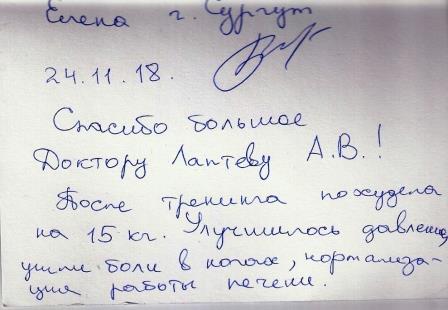 Елена г. Сургут
24.11.18.
Спасибо большое
Доктору Лаптеву А.В.!
После тренинга похудела
на 15 кг. Улучшилось давление,
ушли боли в ногах, нормализа-
ция работы печени.